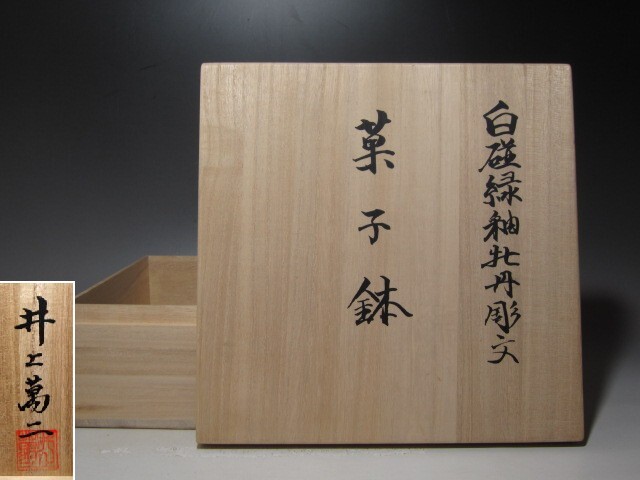 白磁緑釉牡丹彫文
菓子鉢
井上萬二